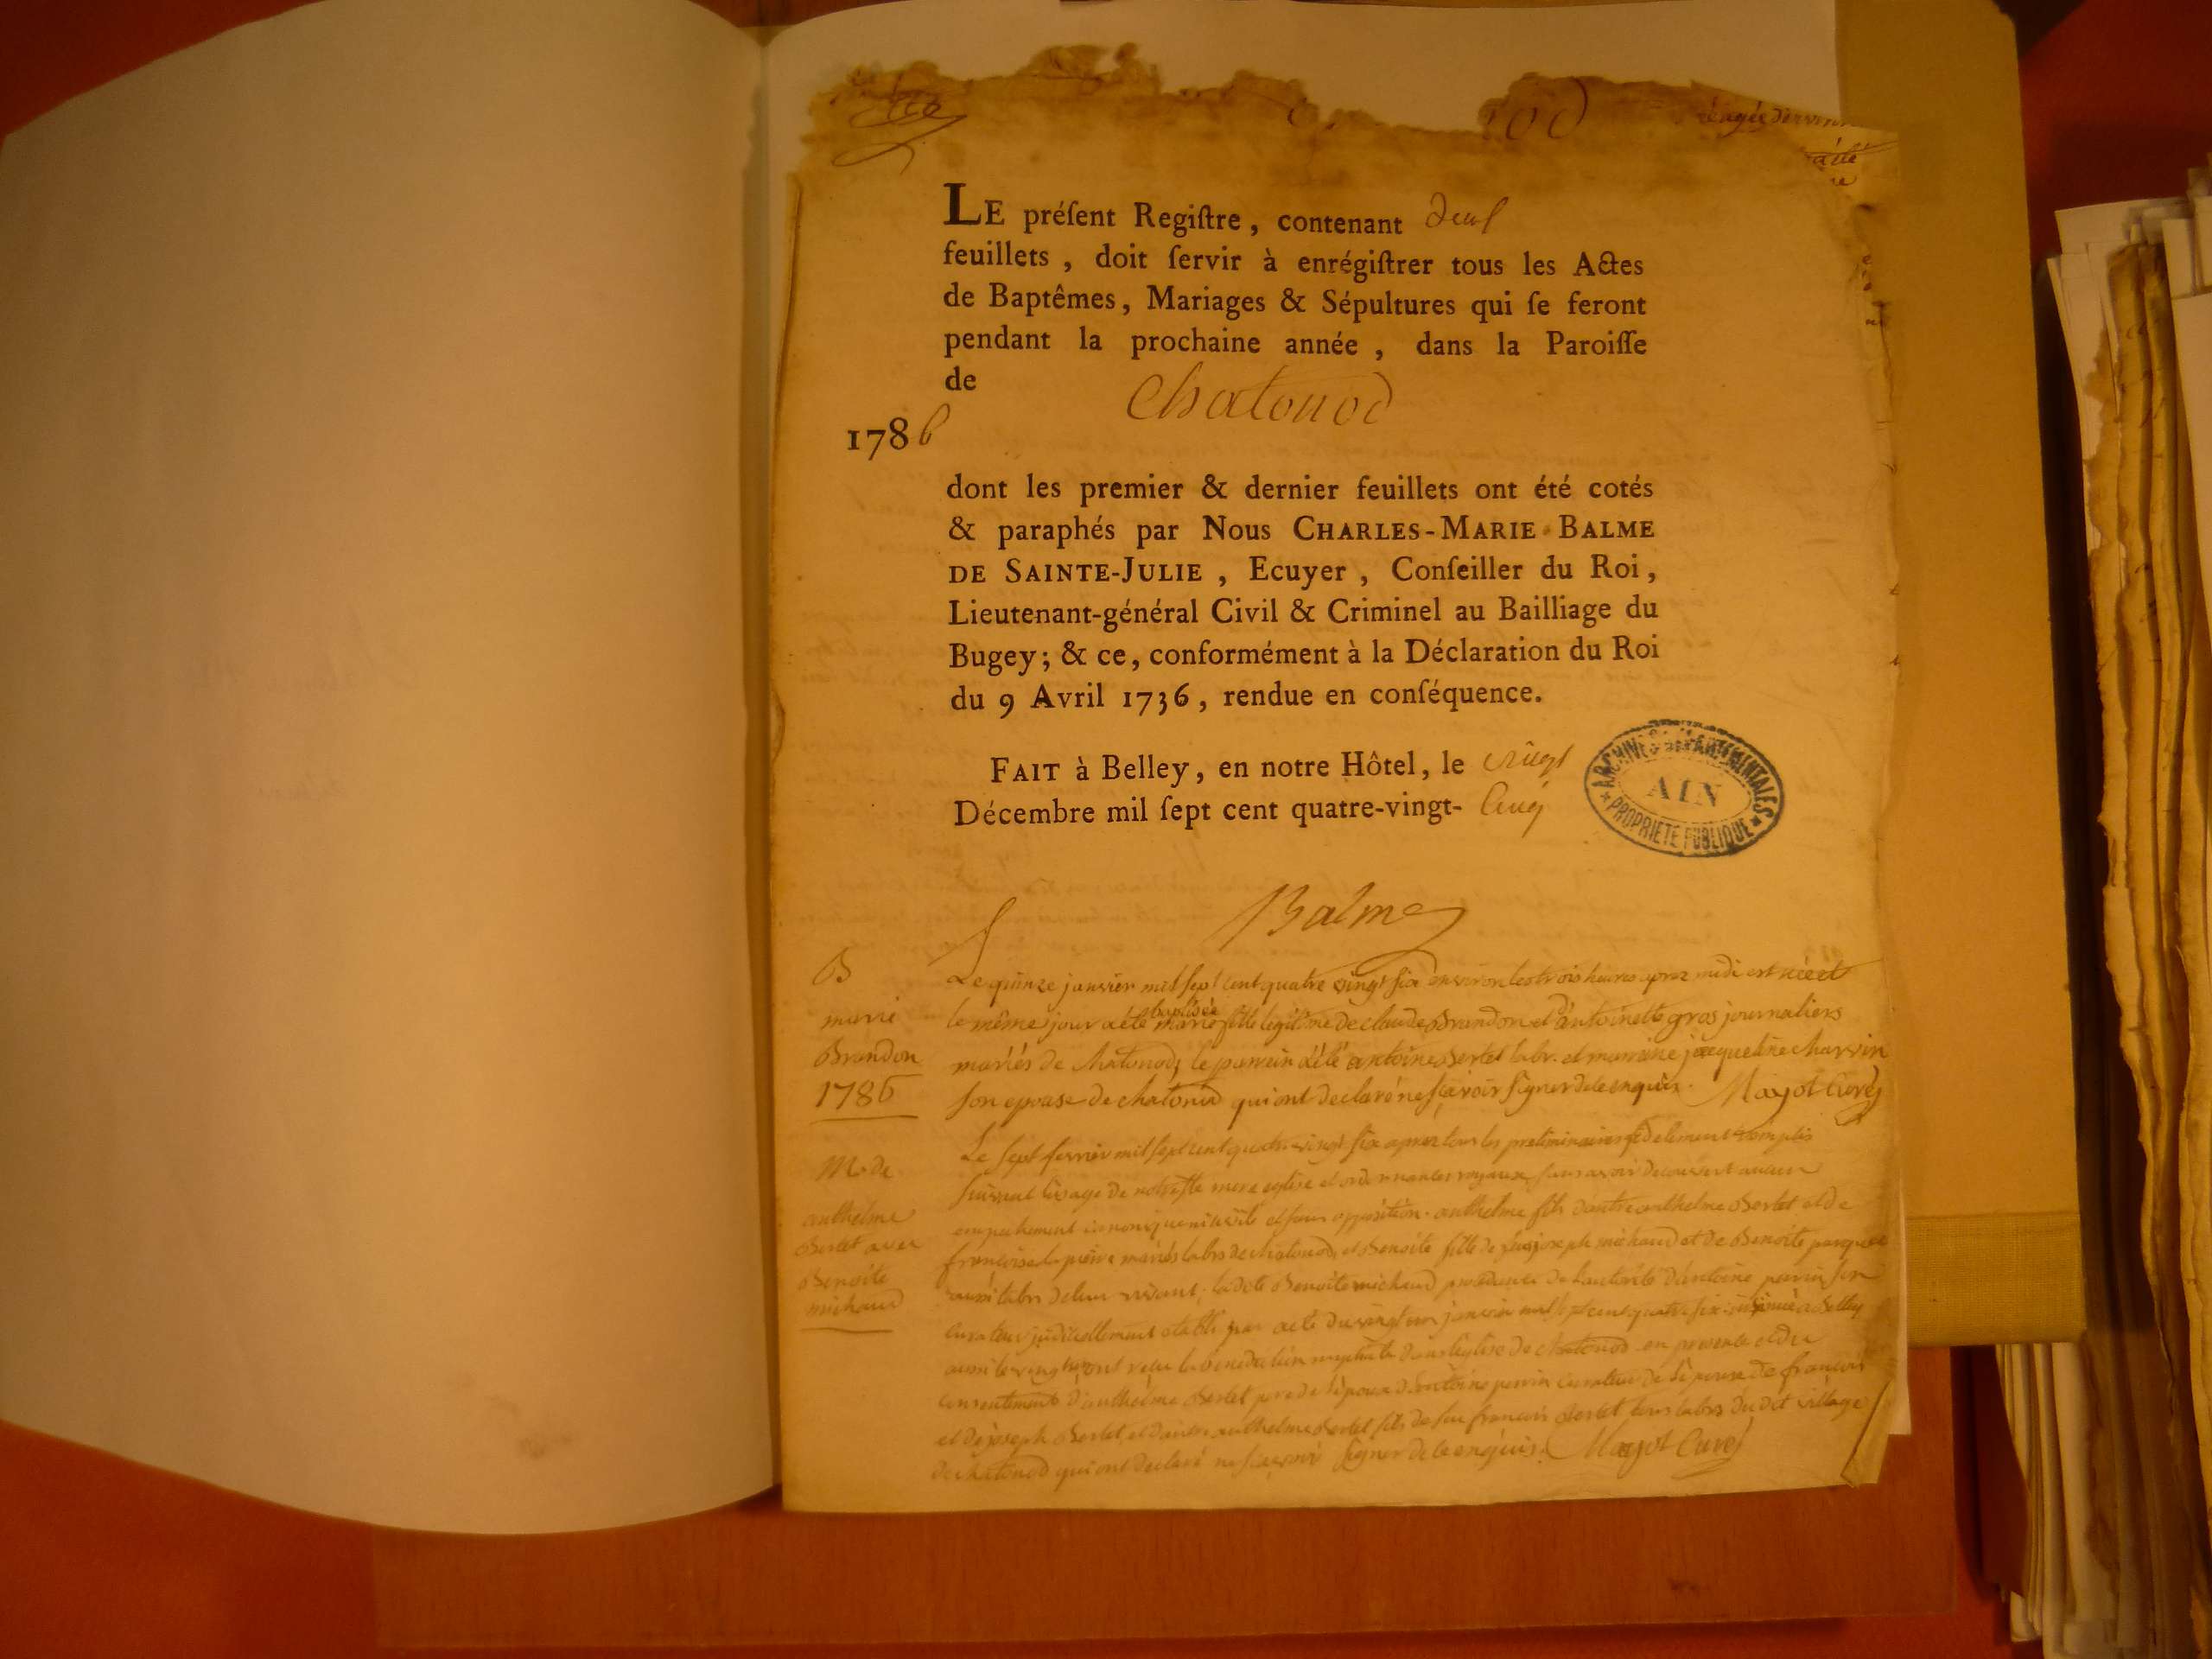 LE préſent Regiſtre, contenant deux
feuillets, doit ſervir à enrégiſtrer tous les Actes
de Baptêmes, Mariages & Sépultures qui ſe feront
pendant la prochaine année, dans la Paroiſſe
de Chatonod
1786
dont les premier & dernier feuillets ont été cotés
& paraphés par Nous CHARLES-MARIE BALME
DE SAINTE-JULIE, Ecuyer, Conſeiller du Roi,
Lieutenant-général Civil & Criminel au Bailliage du
Bugey; & ce, conformément à la Déclaration du Roi
du 9 Avril 1736, rendue en conſéquence.
FAIT à Belley, en notre Hôtel, le vingt
Décembre mil ſept cent quatre-vingt- Cinq
ARCHIVES DÉPARTEMENTALES
AIN
PROPRIÉTÉ PUBLIQUE
Balme
B
marie
Brandon
1786
Le quinze janvier mil sept cent quatre vingt six environ les trois heures aprez midi est née et
le même jour a été baptisée marie fille legitime de claude Brandon et d'antoinette gros journaliers
mariés de chatonod, le parrein a été antoine Bertet labr. et marraine jacqueline charvin
son epouse de chatonod qui ont declaré ne sçavoir signer de ce enquis. Mayot Curé
M. de
anthelme
Bertet avec
Benoite
michaud
Le sept fevrier mil sept cent quatre vingt six aprez tous les preliminaires fidelement remplis
suivant l'usage de notre ste mere eglise et ordonnances royaux sans avoir decouvert aucun
empechement canonique ni civil et sans opposition. anthelme fils d'autre anthelme Bertet et de
françoise mariés labrs de chatonod, et Benoite fille de feu joseph michaud et de Benoite
aussi labrs de leur vivant, ladite Benoite michaud de l'autorité d'antoine perrin son
curateur judiciellement etabli par acte du vingt un janvier mil sept cent quatre six Belley
aussi le vingt ont reçu la benediction nuptiale dans l'eglise de chatonod en presence et du
consentement d'anthelme Bertet pere de l'epoux d'antoine perrin curateur de l'epouse de françois
et de joseph Bertet et d'autre anthelme Bertet fils de feu françois Bertet tous labrs du dit village
de chatonod qui ont declaré ne sçavoir signer de ce enquis. Mayot Curé